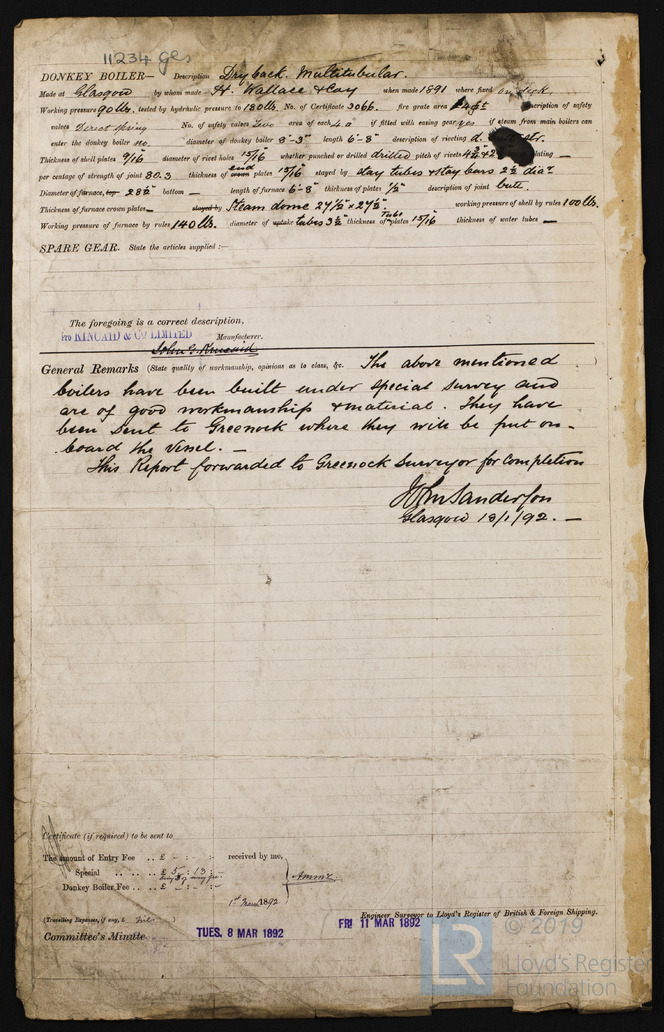 11234 gls
DONKEY BOILER— Description Dryback. Multitubular.
Made at Glasgow by whom made H. Wallace & Coy when made 1891 where fixed on deck
Working pressure 90 lbs. tested by hydraulic pressure to 180 lbs. No. of Certificate 3066. fire grate area description of safety
valves Direct spring No. of safety valves Two area of each if fitted with easing gear yes if steam from main boilers can
enter the donkey boiler no. diameter of donkey boiler 8'-3" length 6'-8" description of riveting d.
Thickness of shell plates 9/16 diameter of rivet holes 15/16 whether punched or drilled drilled pitch of rivets plating —
per centage of strength of joint 80.3 thickness of crown end plates 15/16 stayed by stay tubes & stay bars 2½ diar.
Diameter of furnace, top 28½" bottom — length of furnace 6'-8" thickness of plates ½" description of joint butt.
Thickness of furnace crown plates — stayed by Steam dome 27½" × 27½". working pressure of shell by rules 100 lbs.
Working pressure of furnace by rules 140 lbs. diameter of uptake tubes 3½ thickness of Tube plates 15/16 thickness of water tubes —
SPARE GEAR. State the articles supplied :—
The foregoing is a correct description,
Pro KINCAID & Co LIMITED Manufacturer.
John G. Kincaid
General Remarks (State quality of workmanship, opinions as to class, &c. The above mentioned )
boilers have been built under special survey and
are of good workmanship & material. They have
been sent to Greenock where they will be put on-
board the Vessel. —
This Report forwarded to Greenock Surveyor for completion
John Sanderson
Glasgow 18/1/92. —
Certificate (if required) to be sent to
The amount of Entry Fee .. £ - : - : - received by me,
Special .. .. .. £ 5 : 13 : -
Donkey Boiler Fee .. .. £ - : - : -
1892
(Travelling Expenses, if any, £ Nil )
Engineer Surveyor to Lloyd's Register of British & Foreign Shipping.
Committee's Minute TUES. 8 MAR 1892 FRI 11 MAR 1892
© 2019
LR Lloyd's Register
Foundation